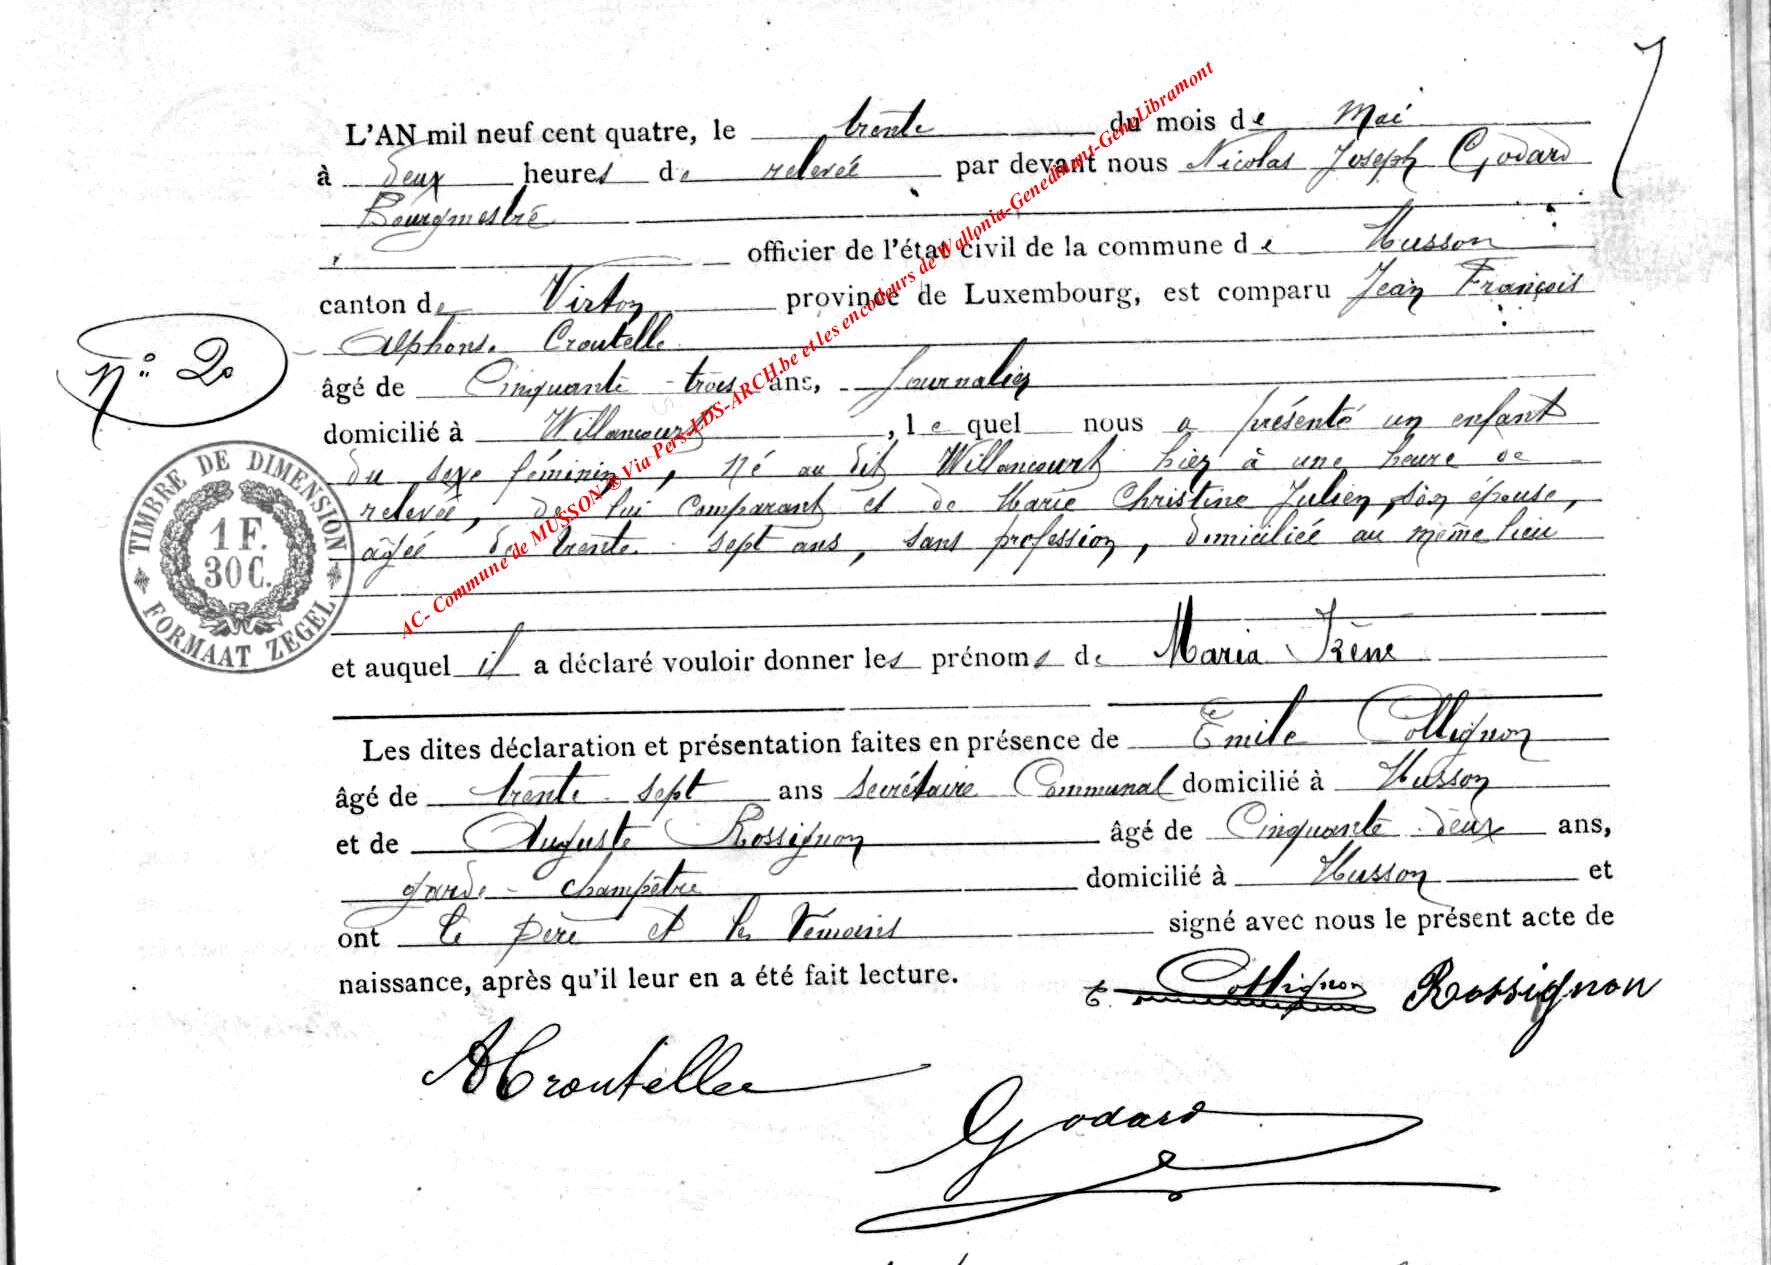 7
L'AN mil neuf cent quatre, le trente du mois de Mai
à deux heures de relevée par devant nous Nicolas Joseph Godard
Bourgmestre
officier de l'état civil de la commune de Musson
canton de Virton province de Luxembourg, est comparu Jean François
Alphonse Croutelle
N° 20
âgé de Cinquante-trois ans, Journalier
domicilié à Willancourt, lequel nous a présenté un enfant
du sexe féminin, né au dit Willancourt hier à une heure de
relevée, de lui comparant et de Marie Christine Julien, son épouse,
âgée de trente-sept ans, sans profession, domiciliée au même lieu
TIMBRE DE DIMENSION
1 F.
30 C.
FORMAAT ZEGEL
et auquel il a déclaré vouloir donner les prénoms de Maria Irène
Les dites déclaration et présentation faites en présence de Emile Collignon
âgé de trente-sept ans secrétaire Communal domicilié à Musson
et de Auguste Rossignon âgé de Cinquante-deux ans,
garde-champêtre domicilié à Musson et
ont le père et les témoins signé avec nous le présent acte de
naissance, après qu'il leur en a été fait lecture.
E. Collignon Rossignon
A Croutelle
Godard
AC- Commune de MUSSON ® Via Pers-LDS-ARCH.be et les encodeurs de Wallonia-Genedinant-GeneLibramont